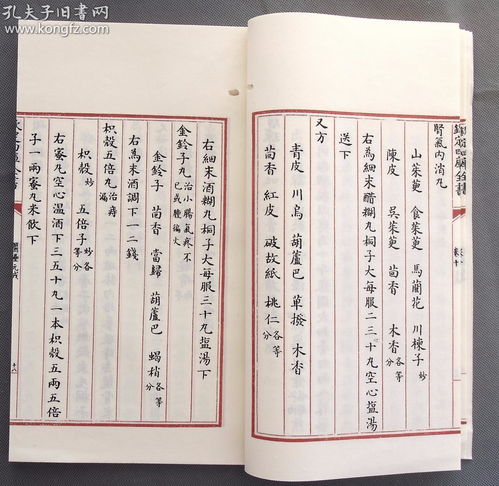 孔夫子旧书网
www.kongfz.com
腎氣內消丸
山茱萸 食茱萸 馬藺花 川楝子炒
陳皮 吳茱萸 茴香 木香各等分
右為細末醋糊丸桐子大每服二三十丸空心塩湯
送下
又方
青皮 川烏 葫蘆巴 蓽撥 木香
茴香 紅皮 破故紙 桃仁各等分
右細末酒糊丸桐子大每服三十丸塩湯下
金鈴子丸治小腸氣疼不已或腫偏大
金鈴子 茴香 當歸 葫蘆巴 蝎梢各等分
右為末酒調下一二錢
枳殼五倍丸治痔漏
枳殼炒 五倍子炒各等分
右蜜丸空心溫酒下三五十丸一本枳殼五兩五倍
子一兩蜜丸米飲下